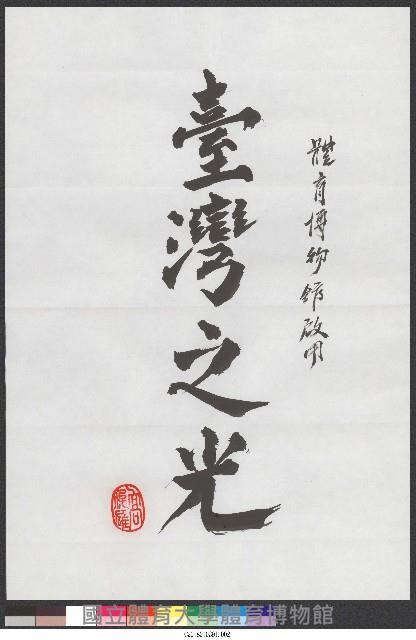 體育博物館啟用
臺灣之光
國立體育大學體育博物館